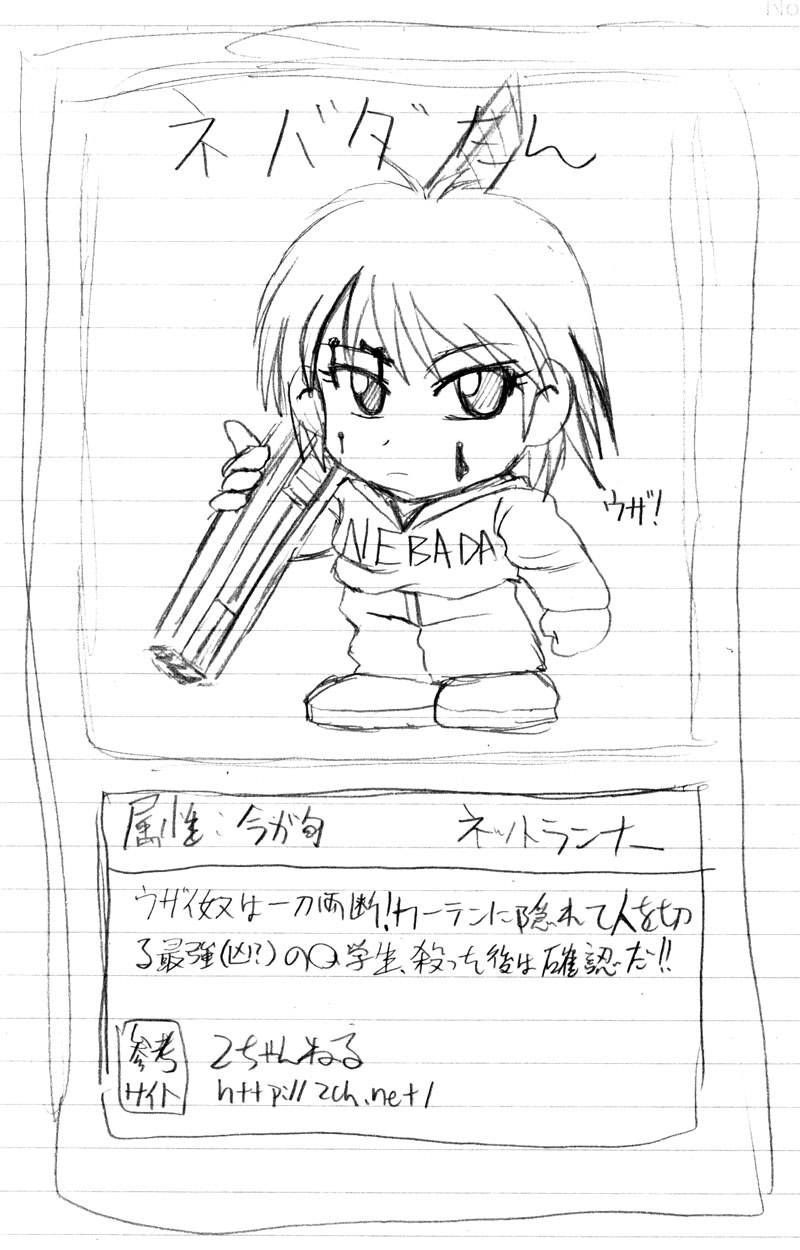 No
ネバダたん
NEBADA
ウザ!
属性:今が旬 ネットランナー
ウザイ奴は一刀両断!カーテンに隠れて人を切
る最強(凶?)の〇学生、殺った後は確認だ!!
参考 2ちゃんねる
サイト http://2ch.net/